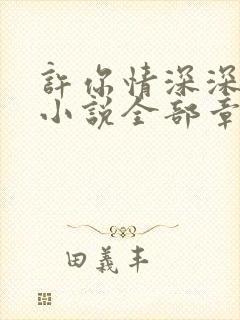 許你情深深
小說全部章
田義丰